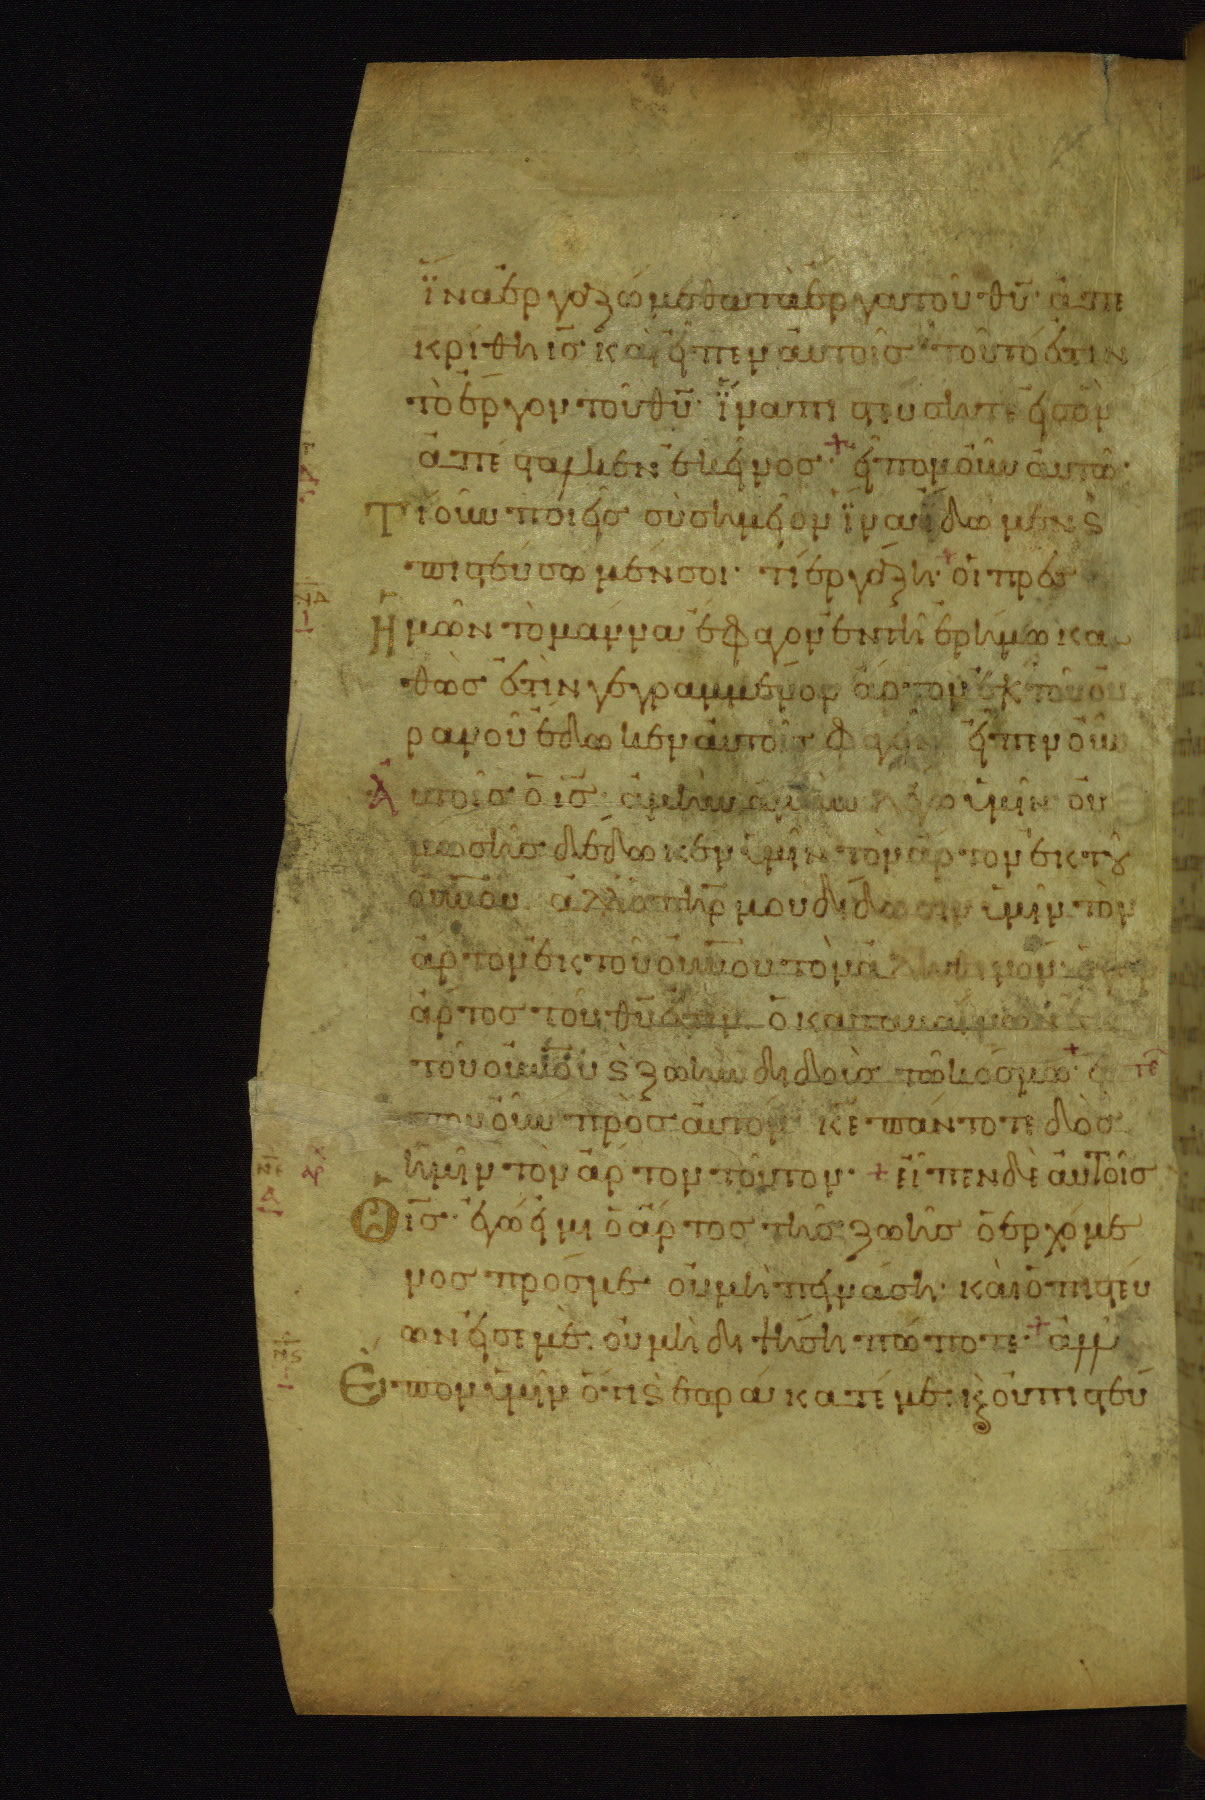 ἵνα ἐργαζώμεθα τὰ ἔργα τοῦ θυ̅· ἀπε
κρίθη ις̅ καὶ εἶπεν αὐτοῖς· τοῦτό ἐστιν
τὸ ἔργον τοῦ θυ̅· ἵνα πιστεύσητε εἰς ὃν
ἀπέσταλκεν ἐκεῖνος· + εἶπον οὖν αὐτῶ·
Τί οὖν ποιεῖς σὺ σημεῖον ἵνα ἴδωμεν ϛ
πιστεύσωμέν σοι· τί ἐργάζη· + οἱ πρες
Ἡμῶν τὸ μάννα ἔφαγον ἐν τῆ ἐρήμω κα
θὼς ἐστὶν γεγραμμένον ἄρτον ἐκ τοῦ οὐ
ρανοῦ ἔδωκεν αὐτοῖς φαγεῖν εἶπεν οὖν
Αὐτοῖς ὁ ις̅· ἀμὴν ἀμὴν λέγω ὑμῖν οὐ
μωσῆς δέδωκεν ὑμῖν τὸν ἄρτον ἐκ τȣ
οὐνου̅ ἀλλ' ὁ πηρ̅ μου δίδωσιν ὑμῖν τὸν
ἄρτον ἐκ τοῦ οὐνου̅ τὸν ἀληθινόν·
ἄρτος τοῦ θυ̅ ἐστιν ὁ καταβαίνων ἐκ
τοῦ οὐνου̅ ϛ ζωὴν διδοὺς τῶ κόσμω· +
πον οὖν πρὸς αὐτόν κε̅ πάντοτε δὸς
ἡμῖν τὸν ἄρτον τοῦτον· + εἶπεν δὲ αὐτοῖς
Ὁ ις̅· ἐγώ εἰμι ὁ ἄρτος τῆς ζωῆς ὁ ἐρχόμε
νος πρός με οὐ μὴ πεινάση· καὶ ὁ πιστεύ
ων εἰς ἐμέ· οὐ μὴ διψήση πώποτε· + ἀλλ'
Εἶπον ὑμῖν ὅτι ϛ ἑωράκατέ με· κ οὐ πιστεύ